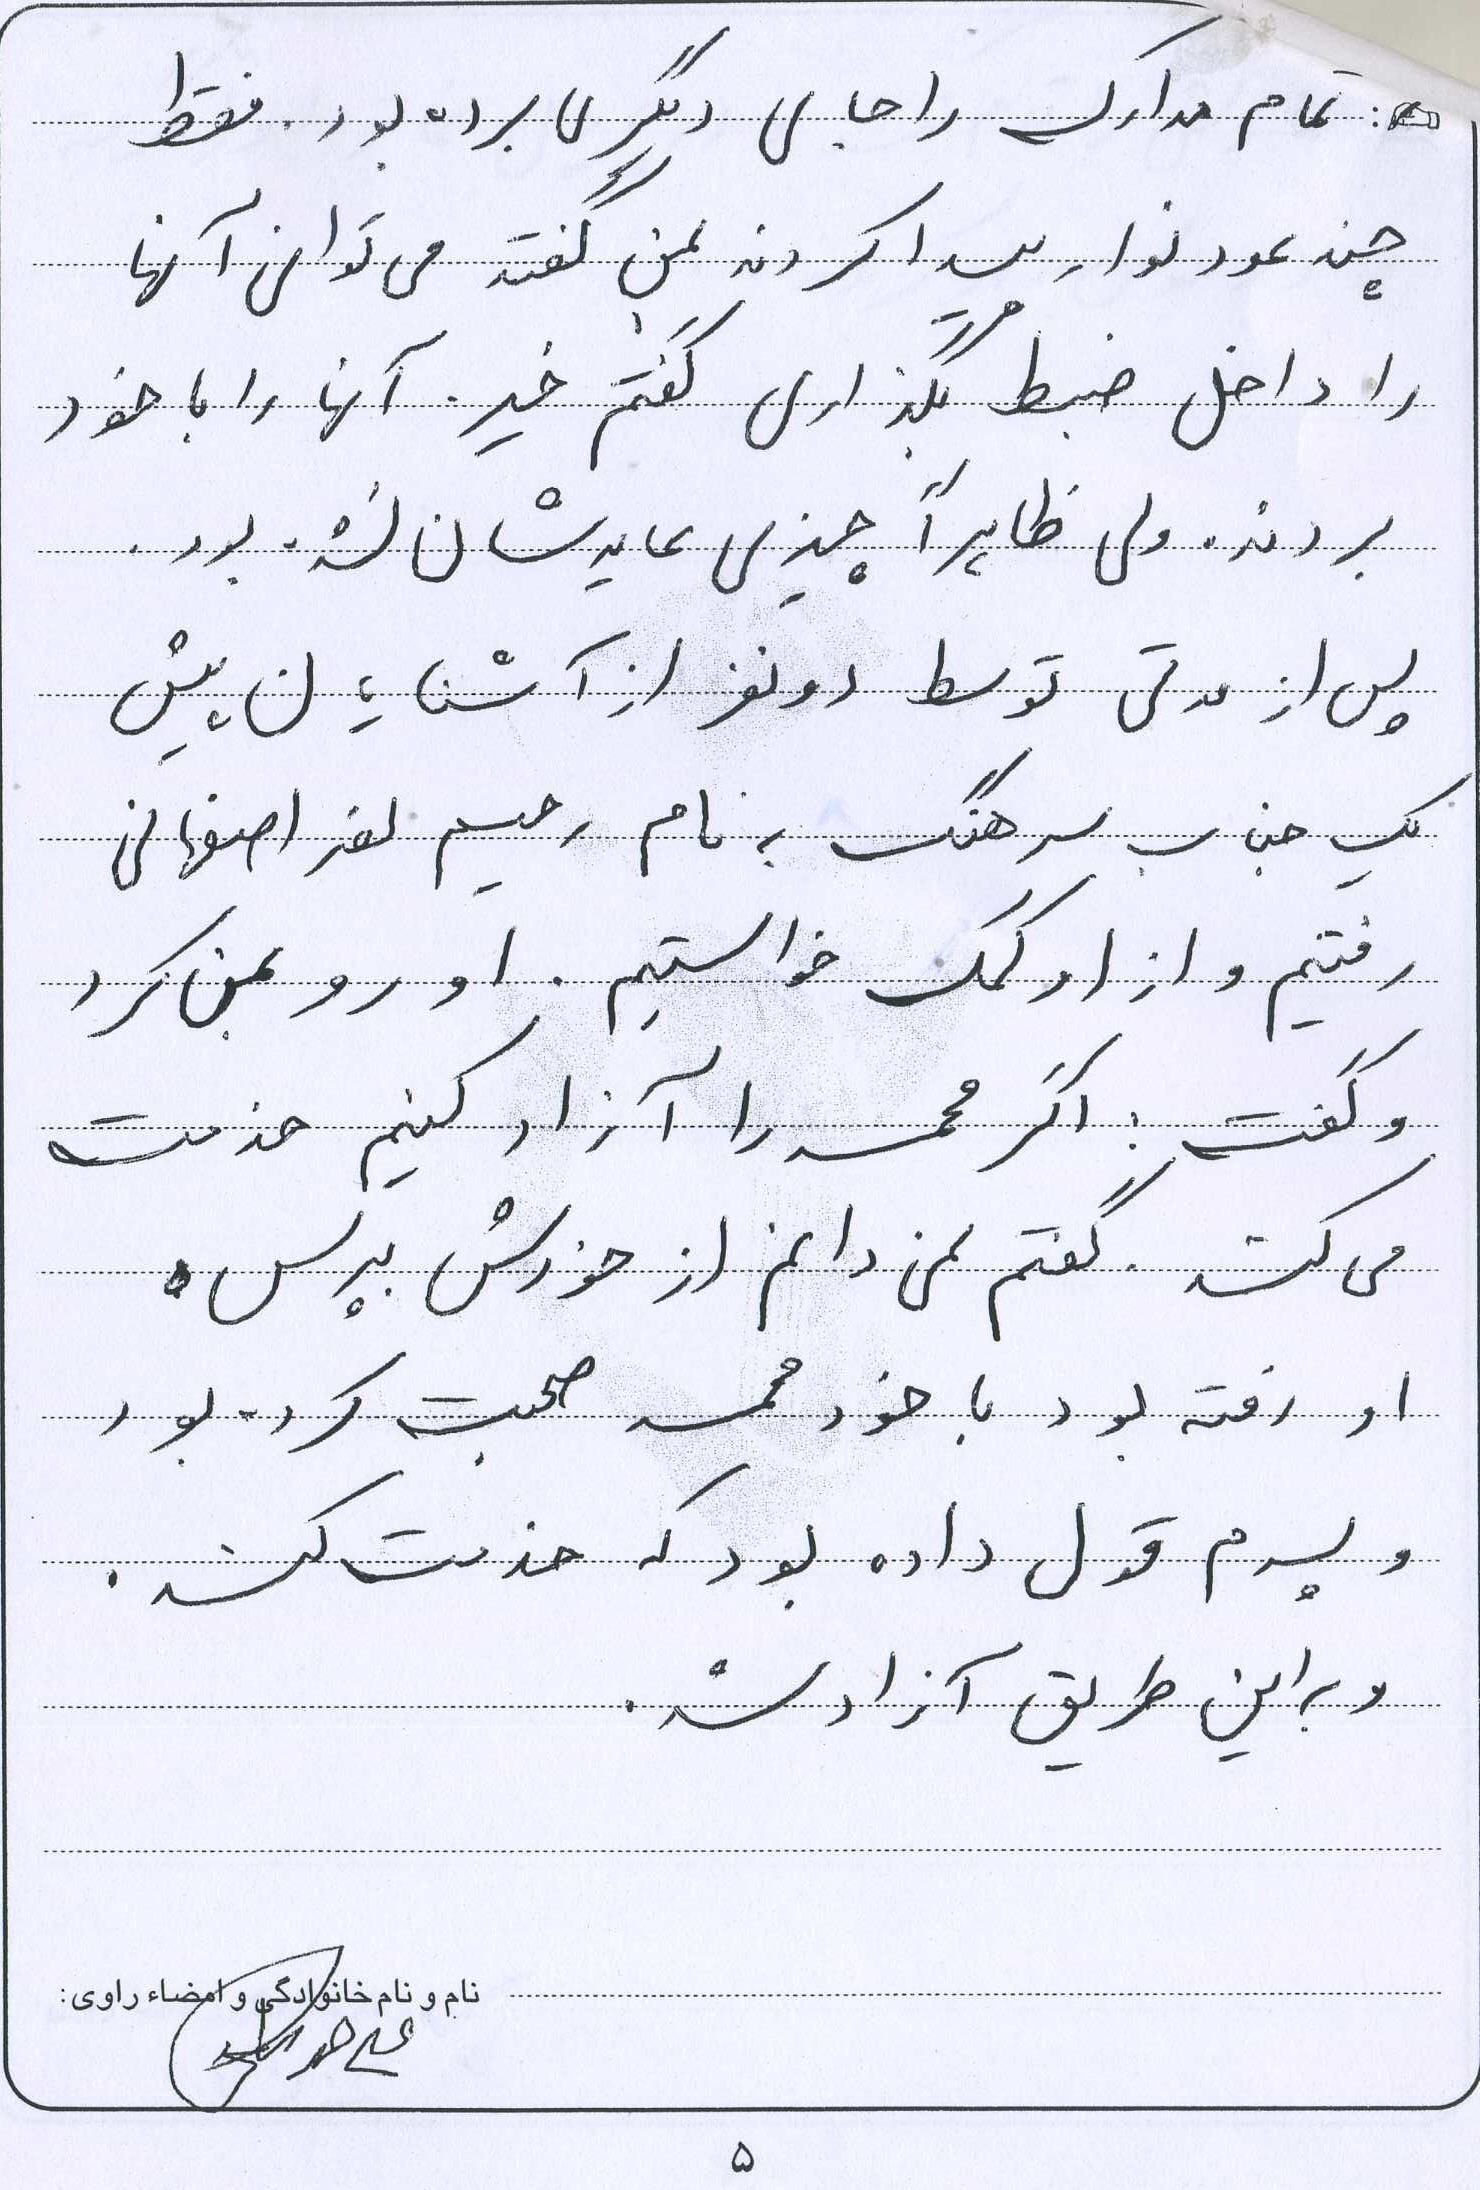 تمام مدارک را جای دیگری برده بود. فقط
چند عدد نوار پیدا کردند بمن گفتند می توانی آنها
را داخل ضبط بگذاری گفتم خیر. آنها را با خود
بردند. ولی ظاهراً چیزی عایدشان نشده بود.
پس از مدتی توسط دو نفر از آشنایان پیش
یک جناب سرهنگ به نام رحیم اصفهانی
رفتیم و از او کمک خواستیم. او رو بمن کرد
و گفت: اگر محمد را آزاد کنیم خدمت
می کند. گفتم نمی دانم از خودش بپرس.
او رفته بود با خود محمد صحبت کرده بود
و پسرم قول داده بود که خدمت کند.
و به این طریق آزاد شد.
نام و نام خانوادگی و امضاء راوی:
۵